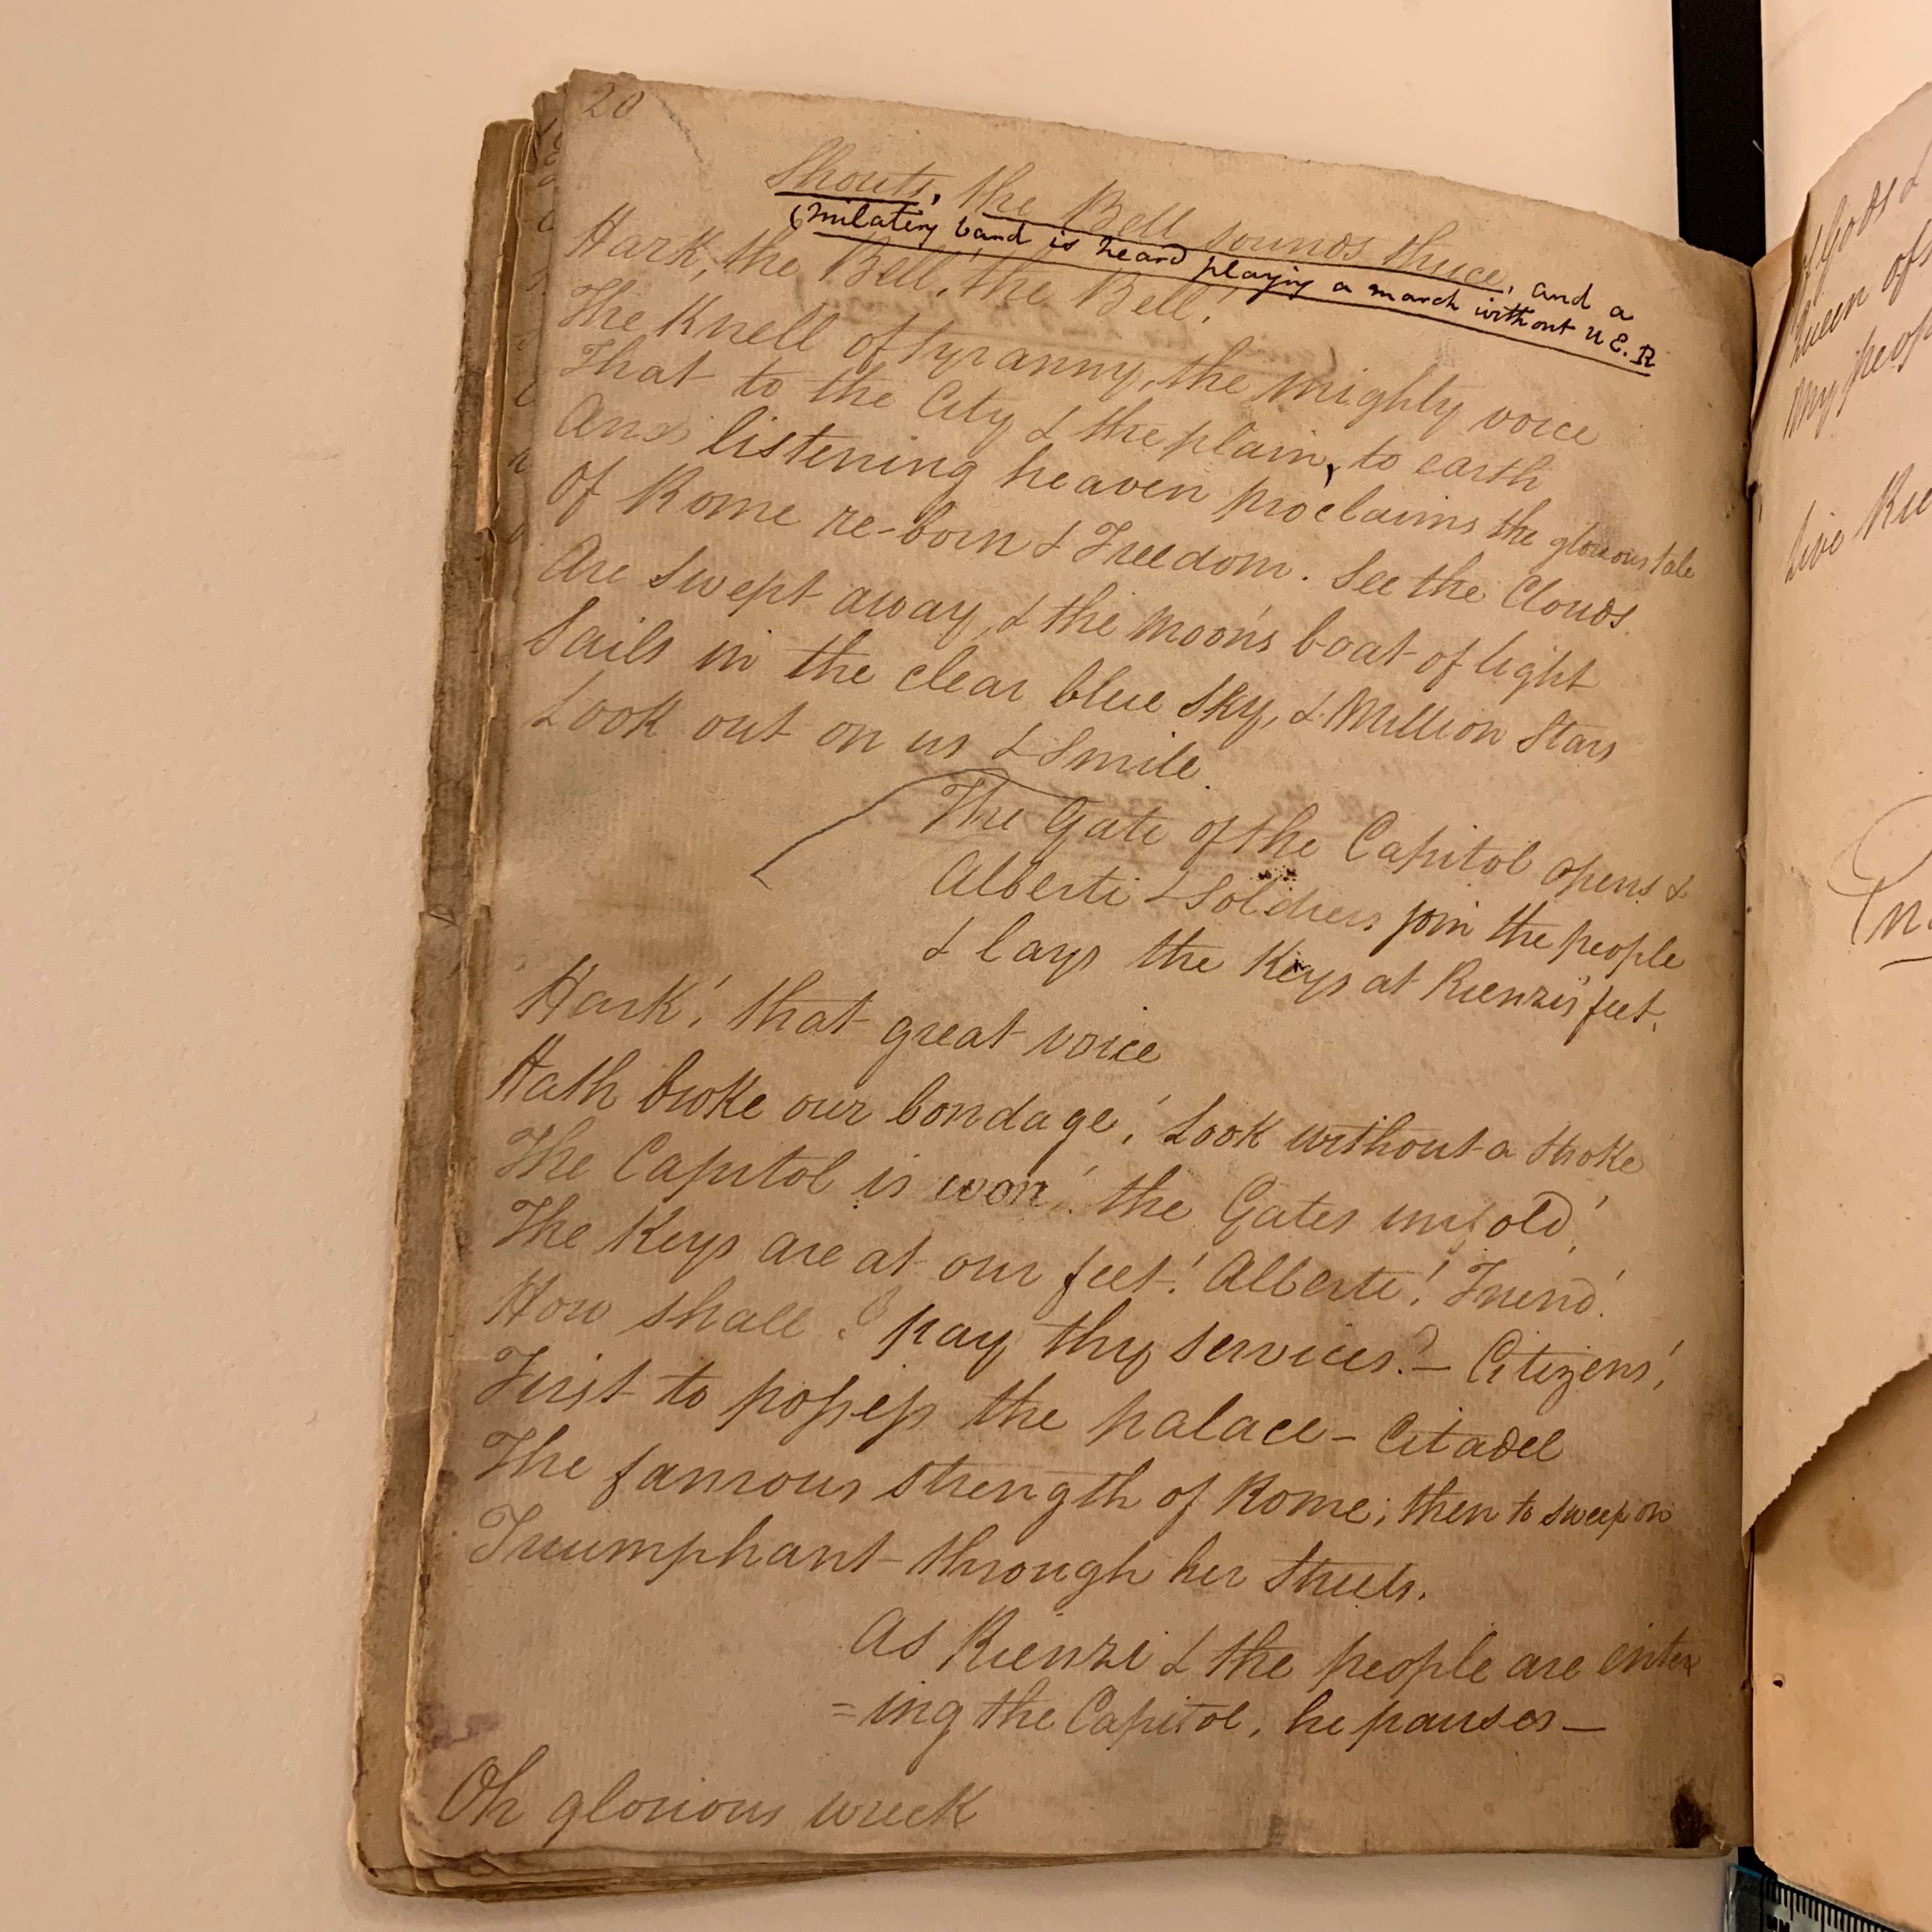 20
Shouts, the Bell sounds thrice, and a
(milatery band is heard playing a march without U.E.R
Hark, the Bell, the Bell!
The Knell of tyranny, the mighty voice
That to the City & the plain, to earth
And listening heaven proclaims the glorious tale
Of Rome re-born & Freedom. See the Clouds
Are swept away, & the Moon's boat of light
Sails in the clear blue Sky, & Million Stars
Look out on us & Smile.
The Gate of the Capitol opens &
Alberti & Soldiers join the people
& lays the Keys at Rienzi's feet.
Hark! that great voice
Hath broke our bondage! Look without a stroke
The Capitol is won! the Gates unfold!
The Keys are at our feet! Alberti! Friend!
How shall I pay thy services? – Citizens!
First to possess the palace – Citadel
The famous strength of Rome; then to sweep on
Triumphant through her Streets.
As Rienzi & the people are enter
=ing the Capitol, he pauses –
Oh glorious wreck
of Gods &
Queen of
My peop
Live Rie